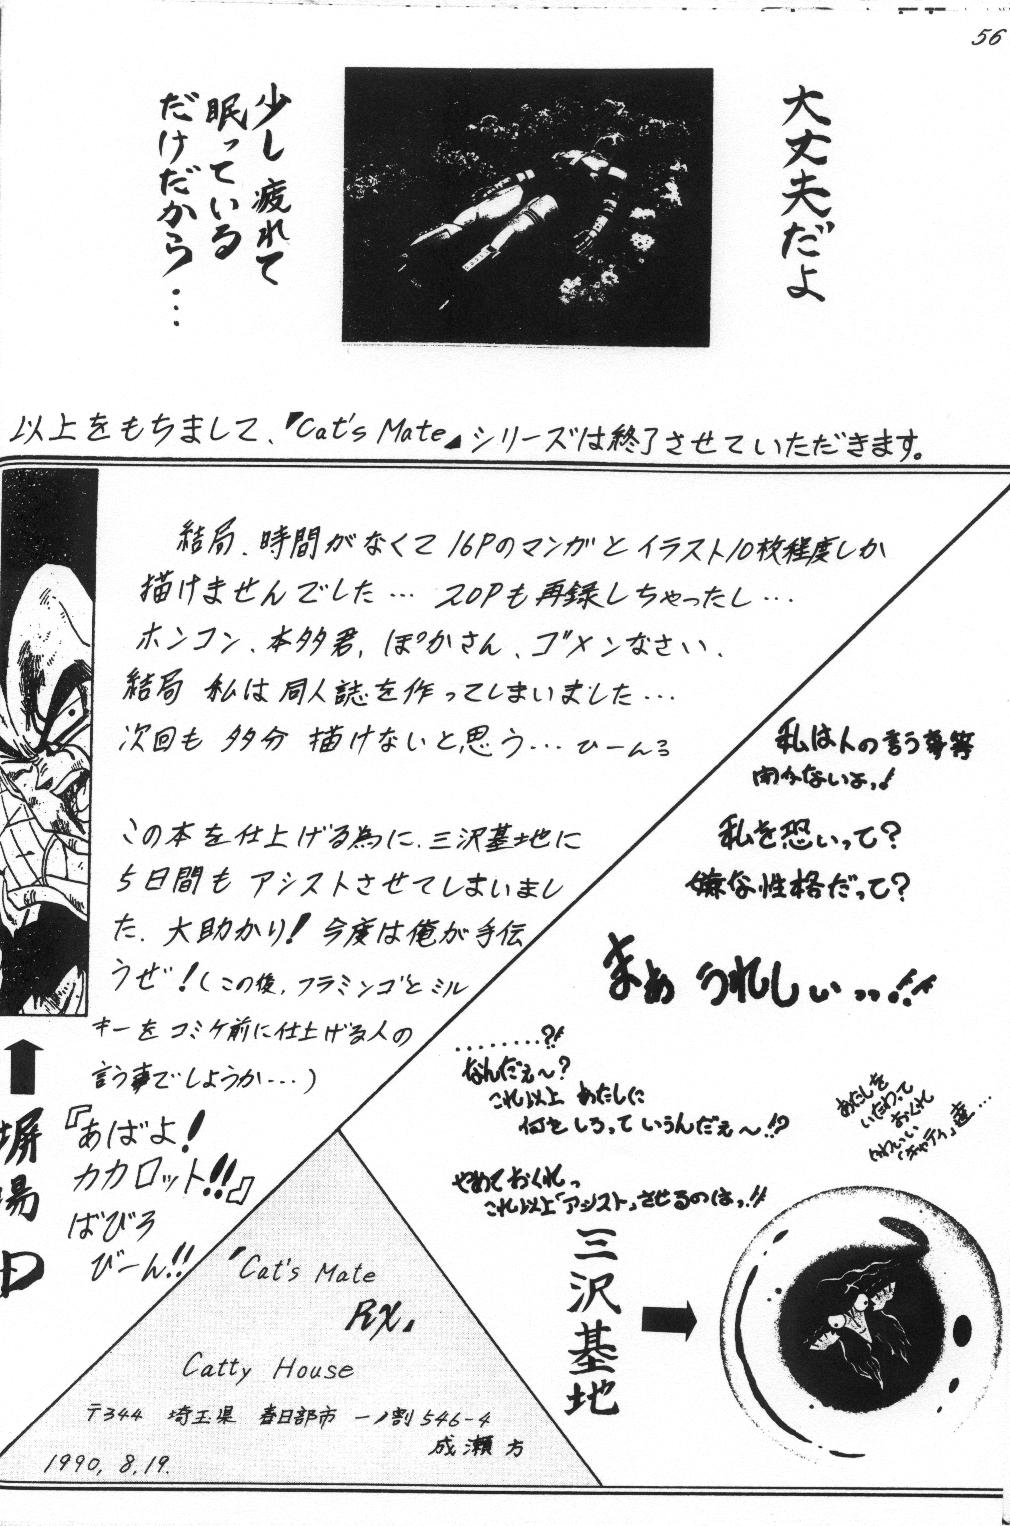 56
大丈夫だよ
少し疲れて
眠っている
だけだから…
以上をもちまして、『Cat's Mate』シリーズは終了させていただきます。
結局、時間がなくて16Pのマンガとイラスト10枚程度しか
描けませんでした… 20Pも再録しちゃったし…
ホンコン、本多君、ぽかさん、ゴメンなさい、
結局 私は同人誌を作ってしまいました…
次回も 多分 描けないと思う… ひーんろ
この本を仕上げる為に、三沢基地に
5日間も アシストさせてしまいまし
た、大助かり! 今度は俺が手伝
うぜ!(この後、フラミンゴとミル
キーをコミケ前に仕上げる人の
言う事でしょうか…)
『あばよ!
カカロット!!』
ばびろ
びーん!!
塀
場
D
私は人の言う事等
聞かないよっ!
私を恐いって?
嫌な性格だって?
まぁ うれしぃ…!!
………?!
なんだぇ〜?
これ以上 あたしに
何をしろって いうんだぇ〜!!?
やめておくれっ
これ以上「アシスト」させるのはっ!!
あたしを
いたわって
おくれ
かわいい
「チャティ」達…
三沢基地
『Cat's Mate
RX』
Catty House
〒344 埼玉県 春日部市 一ノ割 546-4
成瀬方
1990, 8, 19.